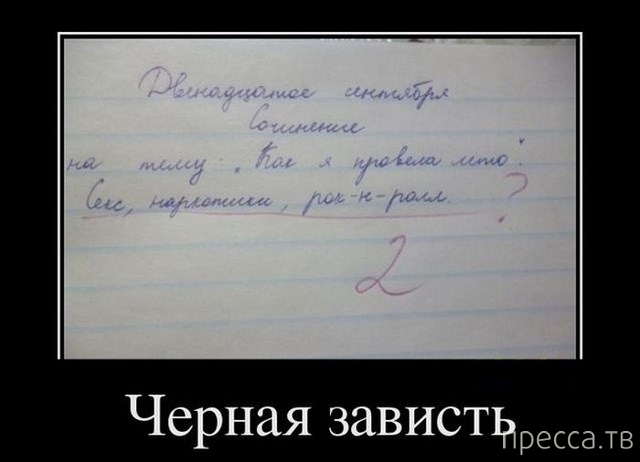 Двенадцатое сентября
Сочинение
на тему: „Как я провела лето".
Секс, наркотики, рок-н-ролл.
?
2
Черная зависть
пресса.тв